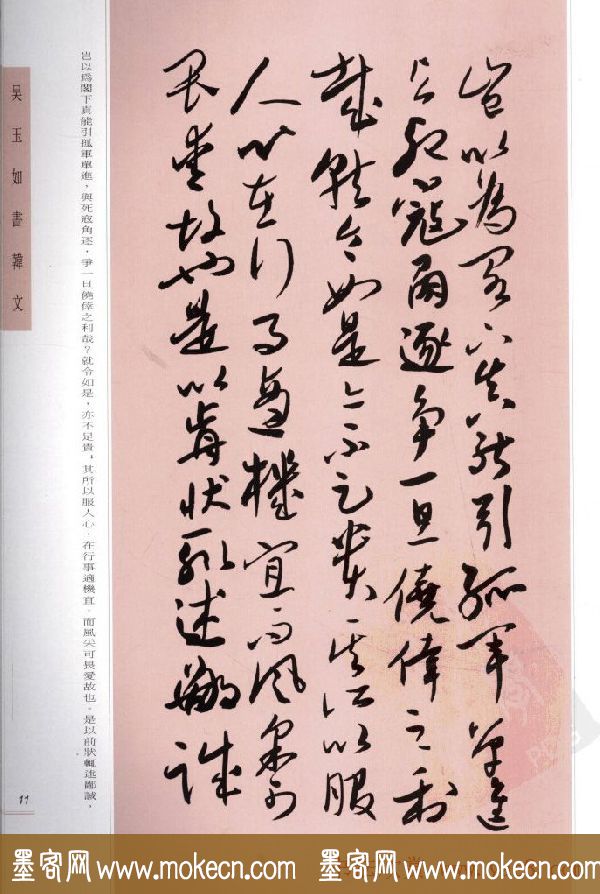 豈以為閣下真能引孤軍單進
与死寇角逐爭一旦僥倖之利
哉就令如是亦不足貴其所以服
人心在行事適機宜而風采可
畏愛故也是以前狀輒述鄙誠
豈以爲閣下真能引孤軍單進，與死寇角逐，爭一日僥倖之利哉？就令如是，亦不足貴，其所以服人心，在行事適機宜，而風采可畏愛故也。是以前狀輒述鄙誠，
吴玉如書韓文
墨客网 www.mokecn.com 墨客网 www.mokecn.com